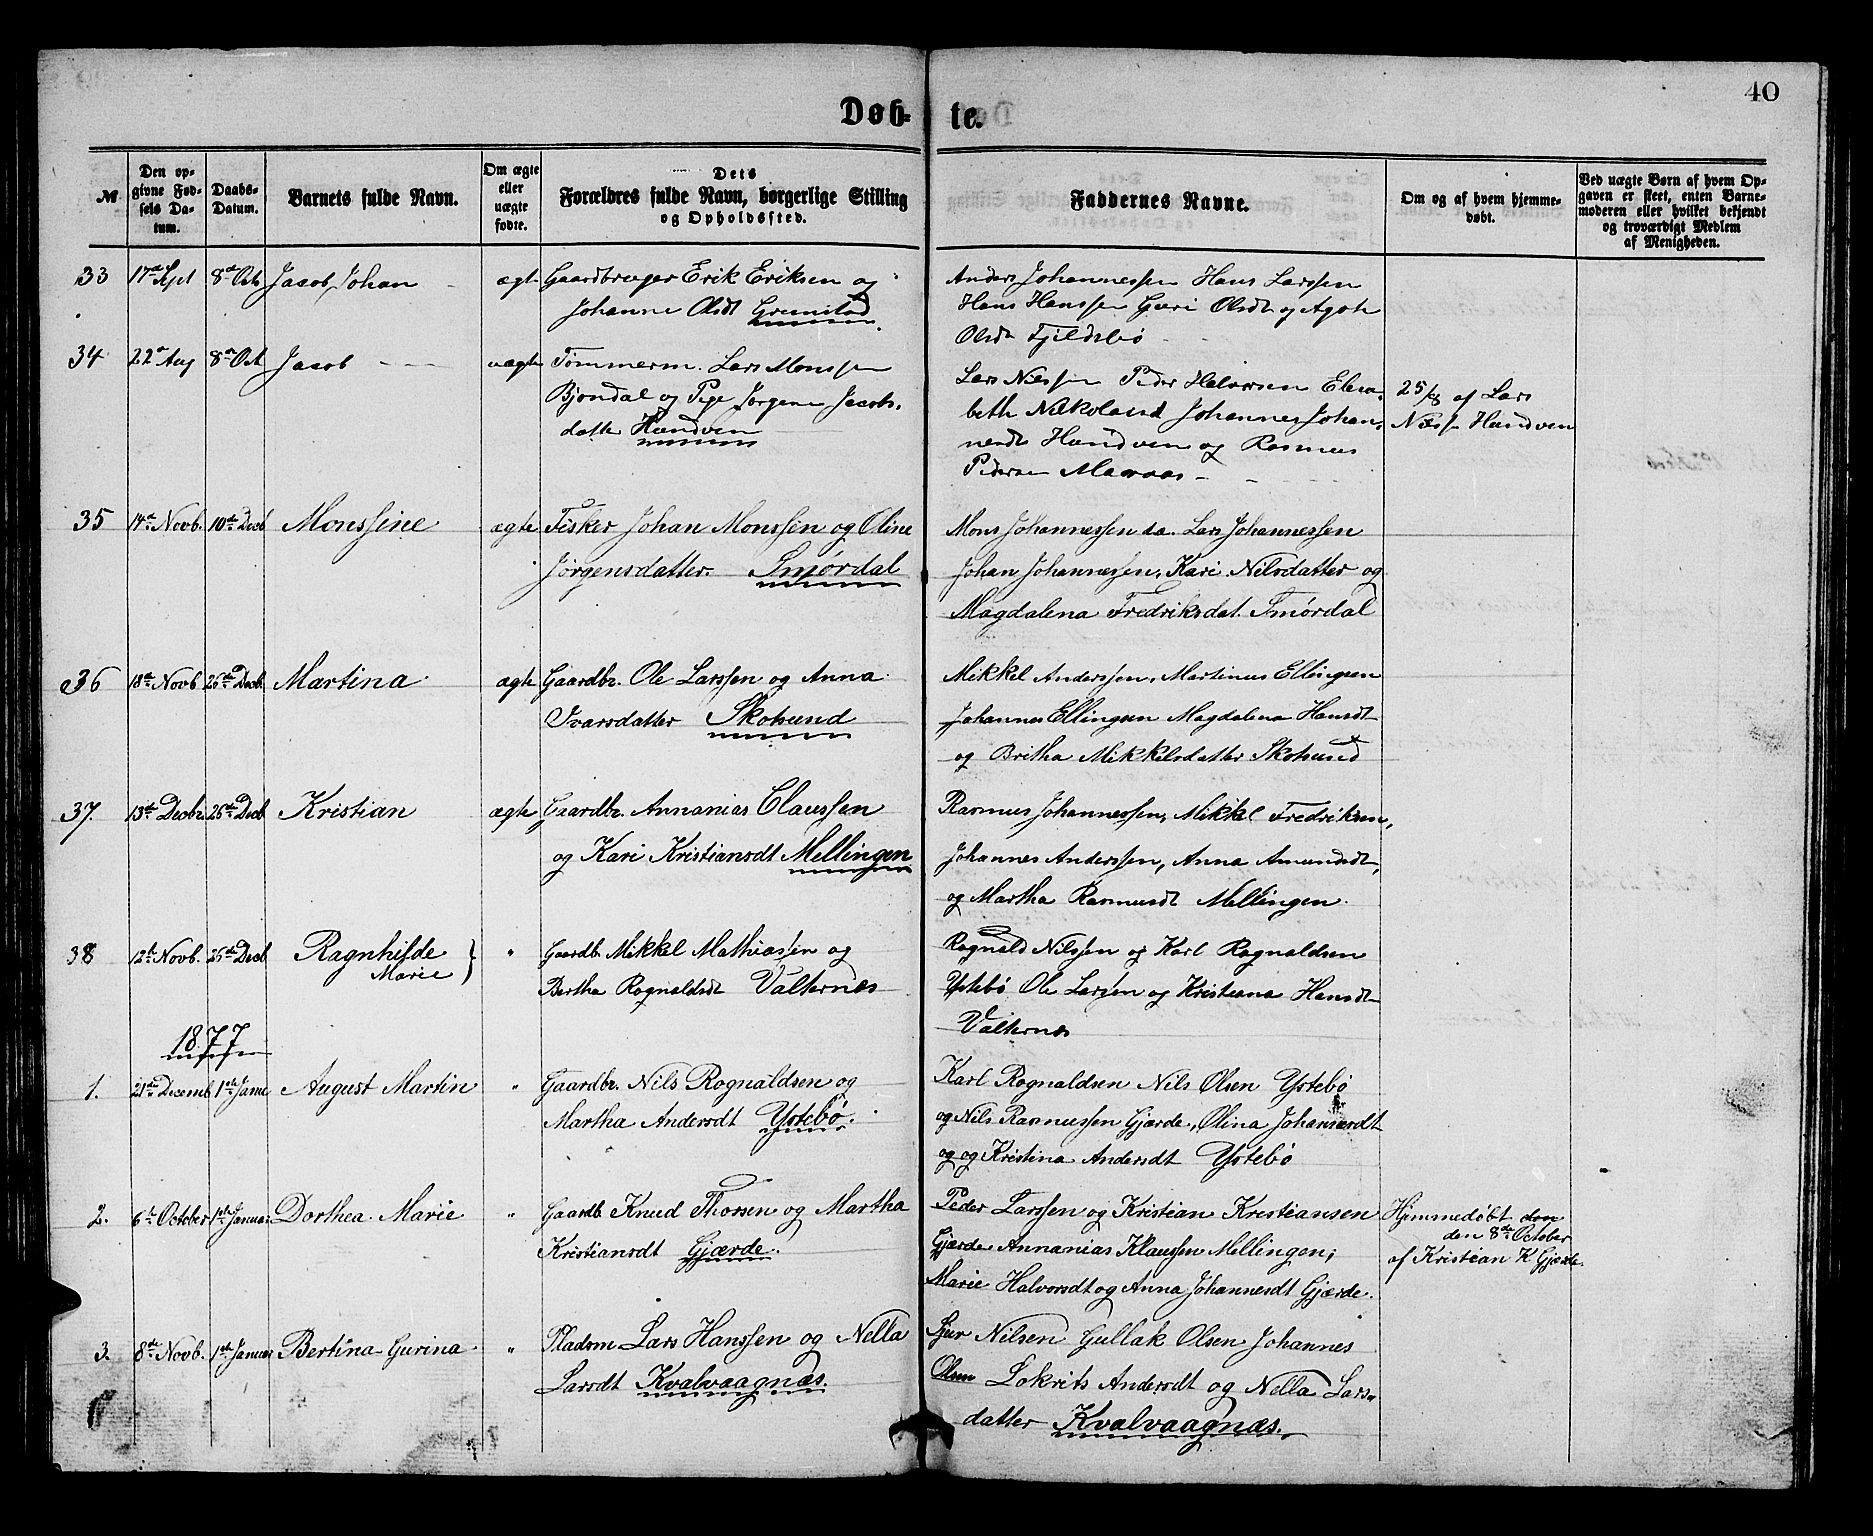 40
Døb-te.
№
Den op-
givne Fød-
sels Da-
tum.
Daabs-
Datum.
Barnets fulde Navn.
Om ægte
eller
uægte
fødte.
Dets
Forældres fulde Navn, borgerlige Stilling
og Opholdssted.
Faddernes Navne.
Om og af hvem hjemme-
døbt.
Ved uægte Børn af hvem Op-
gaven er skeet, enten Barne-
moderen eller hvilket bekjendt
og troværdigt Medlem
af Menigheden.
33 17de Sept 8de Octr Jacob Johan ægt Gaardbruger Erik Eriksen og
Johanne Olsdt Grimstad
Anders Johannessen Hans Larssen
Hans Hanssen Guri Olsdt og Agate
Olsdt Fjeldsbø
34 22de Aug 8de Oct Jacob uægte Tømmerm. Lars Monssen
Bjøndal og Pige Jørgene Jacobs-
datter Handven
Lars Nilssen Peder Halvorsen
beth Nikolausd Johannes Johan-
nesdt Handven og Rasmus
Pedersen
25/8 af Lars
Nilss Handven
35 14de Novb. 10de Decb Monssine ægte Fisker Johan Monssen og Oline
Jørgensdatter. Smørdal
Mons Johannessen da. Lars Johannessen
Johan Johannessen, Kari Nilsdatter og
Magdalena Fredriksdat. Smørdal
36 18de Novb 26de Decb. Martina ægte Gaardbr. Ole Larssen og Anna
Ivarsdatter Skotsund
Mikkel Anderssen, Martinus Ellingsen
Johannes Ellingsen Magdalena Hansdt
og Britha Mikkelsdatter Skotsund
37. 13de Decbr. 26de Decb Kristian ægte Gaardbr. Annanias Claussen
og Kari Kristiansdt Mellingen
Rasmus Johannessen, Mikkel Fredriksen,
Johannes Anderssen, Anna Amundsdt,
og Martha Rasmusdt Mellingen.
38 12te Novb. 26de Decb Ragnhilde
Marie
" Gaardb. Mikkel Mathiassen og
Bertha Rognaldsdt Valternæs
Rognald Nilssen og Karl Rognaldsen
Ystebø Ole Larssen og Kristiana Hansdt
Valternæs
1877
1. 21de Decemb 1ste Janr August Martin " Gaardbr. Nils Rognaldsen og
Martha Andersdt Ystebø.
Karl Rognaldsen Nils Olsen Ystebø
og Nils Rasmussen Gjærde, Olina Johannesdt
og og Kristina Andersdt Ystebø
2. 6te October 1ste Januar Dorthea Marie " Gaardb. Knud Thorsen og Martha
Kristiansdt Gjærde.
Peder Larssen og Kristian Kristiansen
Gjærde Annanias Klaussen Mellingen,
Marie Halvorsdt og Anna Johannesdt Gjærde.
Hjemmedøbt den
den 8de October
af Kristian K Gjærde.
3. 8de Novb. 1ste Januar Bertina Gurina " Pladsm Lars Hanssen og Nella
Larsdt Kvalvaagnæs.
Sjur Nilsen Gullak Olsen Johannes
Olsen Lokrits Andersdt og Nella Lars-
datter Kvalvaagnæs.